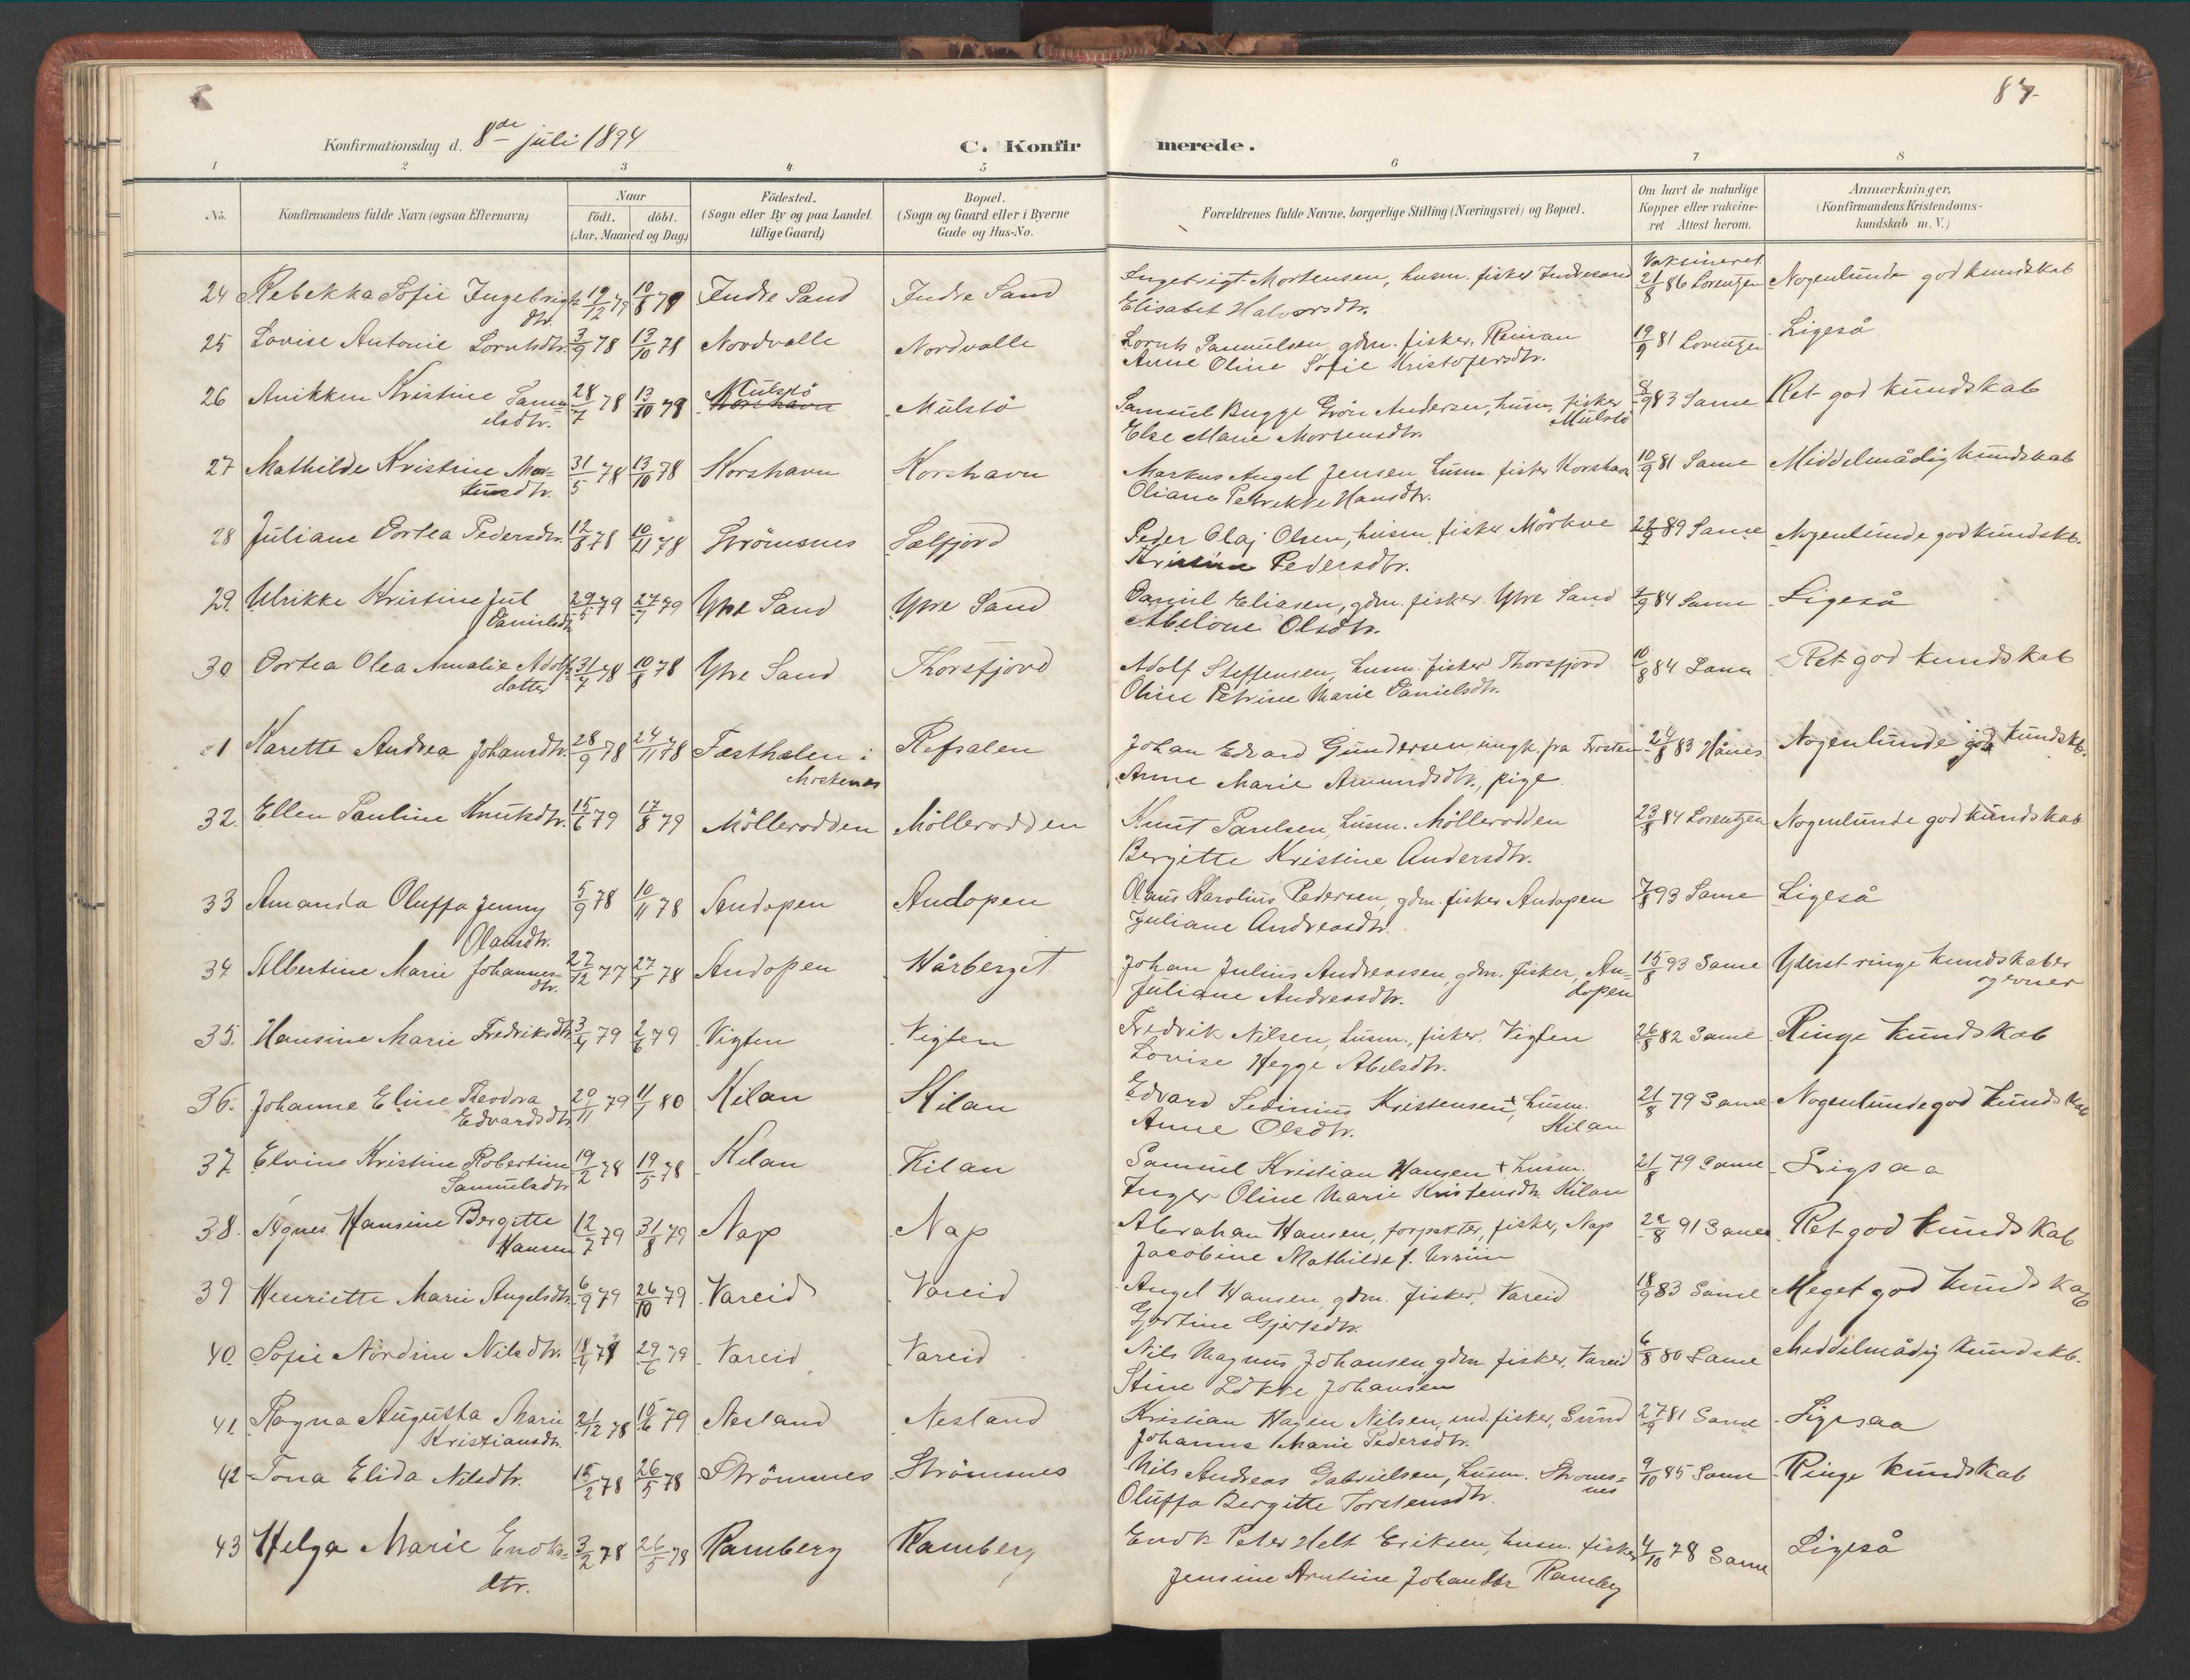 87
Konfirmationsdag d. 8de juli 1894 C. Konfirmerede.
1 2 3 4 5 6 7 8
No. Konfirmandens fulde Navn (ogsaa Efternavn) Naar födt. döbt. (Aar, Maaned og Dag.) Födested. (Sogn eller By og paa Landet tillige Gaard) Bopæl. (Sogn og Gaard eller i Byerne Gade og Hus-No. Forældrenes fulde Navne, borgerlige Stilling (Næringsvei) og Bopæl. Om havt de naturlige Kopper eller vakcineret. Attest herom. Anmærkninger. (Konfirmandens Kristendomskundskab m. V.)
Vaksineret
24 Rebekka Sofie Ingebrigt- 19/12 79 10/8 79 Indre Sand Indre Sand Ingebrigt Mortensen, husm. fisker Indresand 21/8 86 Lorentzen Nogenlunde god kundskab
dtr. Elisabet Halvorsdtr.
25 Lovise Antonie Lorntsdtr. 3/9 78 13/10 78 Nordvalle Nordvalle Lornts Samuelsen, gdm. fisker, 19/9 81 Lorentzen Ligeså
Anne Oline Sofie Kristofersdtr.
26 Anikken Kristine Samu- 28/7 78 13/10 78 Mulstö Mulstö Samuel Bugge Grön Andersen, husm, fisker 8/9 83 Same Ret god kundskab
elsdtr. Korshavn Mulstö
Else Marie Mortensdtr.
27 Mathilde Kristine Mar- 31/5 78 13/10 78 Korshavn Korshavn Markus Angel Jensen husm. fisker Korshavn 10/9 81 Same Middelmådig kundskab
kusdtr. Oliana Petrikke Hansdtr.
28 Juliane Dortea Pedersdtr. 12/8 78 10/11 78 Strömsnes Selfjord Peder Olaj Olsen, husm, fisker 89 Same Nogenlunde god kundskb.
Kristine Pedersdtr.
29. Ulrikke Kristine Jul 29/5 79 27/7 79 Ytre Sand Ytre Sand Daniel Eliasen, gdm. fisker Ytre Sand 84 Same Ligeså
Danielsdtr. Abelone Olsdtr.
30 Dortea Olea Amalie Adolfs- 31/7 78 10/8 78 Ytre Sand Thorsfjord Adolf Steffensen, husm. fisker Thorsfjord 10/8 84 Same Ret god kundskab
datter Oline Petrine Marie Danielsdtr.
31 Karette Andrea Johansdtr. 28/9 78 24/11 78 Festhælen i Refsalen Johan Edvard Gundersen, ungk. fra Trosten 24/8 83 Hånes Nogenlunde god kundskb.
Moskenes Anne Marie Amundsdtr., pige.
32. Ellen Pauline Knutsdtr. 15/6 79 17/8 79 Möllerodden Möllerodden Knut Paulsen, husm. Möllerodden 23/8 84 Lorentzen Nogenlunde god kundskab
Bergitte Kristine Andersdtr.
33 Amanda Oluffa Jenny 5/9 78 10/11 78 Andopen Andopen Olaus Karolius Pedersen, gdm. fisker Andopen 7/8 93 Same Ligeså
Olausdtr. Juliane Andreasdtr.
34 Albertine Marie Johannes- 27/12 77 27/1 78 Andopen Hårberget Johan Julius Andreassen, gdm. fisker, An- 15/8 93 Same Yderst ringe kundskaber
dtr. dopen og evner
Juliane Andreasdtr.
35. Hansine Marie Fredriksdtr. 3/4 79 2/6 79 Vigten Vigten Fredrik Nilsen, husm., fisker, Vigten 26/8 82 Same Ringe kundskab
Lovise Hegge Abelsdtr.
36. Johanne Eline Theodora 20/11 79 11/1 80 Kilan Kilan Edvard Sedinius Kristensen +, husm. 21/8 79 Same Nogenlunde god kundskab
Edvardsdtr. Anne Olsdtr. Kilan
37. Elvine Kristine Robertine 19/2 78 19/5 78 Kilan Kilan Samuel Kristian Hansen + husm. 21/8 79 Same Ligsaa
Samuelsdtr Inger Oline Marie Kristensdtr. Kilan
38. Agnes Hansine Bergitte 12/7 79 31/8 79 Nap Nap Abraham Hansen, forpakter, fisker, Nap 22/8 91 Same Ret god kundskab
Hansen Jacobine Mathilde f. Ursin
39 Henriette Marie Angelsdtr. 6/9 79 26/10 79 Vareid Vareid Angel Hansen, gdm. fisker, Vareid 18/9 83 Same Meget god kundskab
Gjertine Gjertsdtr.
40. Sofie Nordine Nilsdtr. 18/4 79 29/6 79 Vareid Vareid Nils Magnus Johansen, gdm. fisker, Vareid 6/8 80 Same Middelmådig kundskb.
Stine Lökke Johansen
41. Ragna Augusta Marie 21/12 78 15/6 79 Nesland Nesland Kristian Hagen Nilsen, ind. fisker, Sund 27/9 81 Same Ligesaa
Kristiansdtr. Johanna Marie Pedersdtr.
42 Tona Elida Nilsdtr. 15/2 78 26/5 78 Strömsnes Strömsnes Nils Andreas Gabrielsen, husm. Stroms- 9/10 85 Same Ringe kundskab
nes
Oluffa Bergitte Torstensdtr.
43 Helga Marie Enoks- 3/2 78 26/5 78 Ramberg Ramberg Enok Peter Helt Eriksen, husm. fisker 4/10 78 Same Ligeså
dtr. Jensine Arntine Johansdtr Ramberg